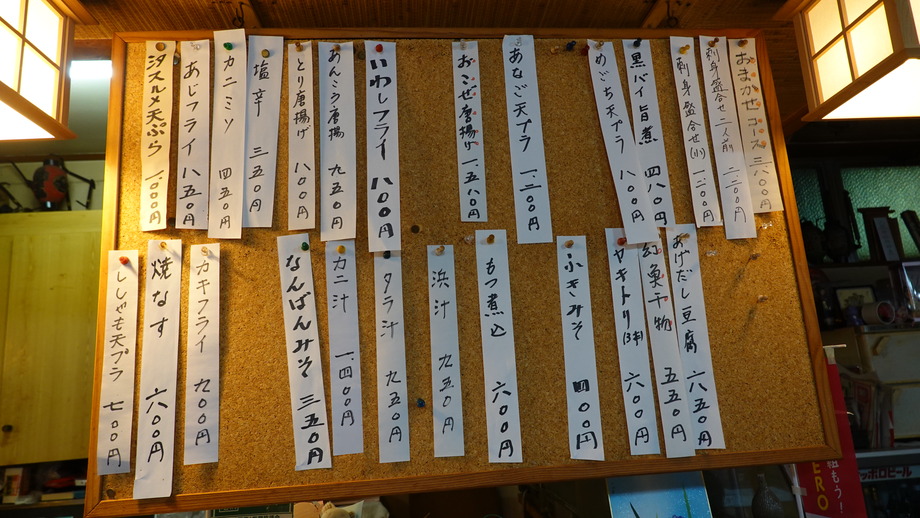 おまかせコース 三、八〇〇円
刺身盛合せ 二人前 二、二〇〇円
刺身盛合せ(小) 一、二〇〇円
黒バイ旨煮 四八〇円
めごち天プラ 八〇〇円
あなご天プラ 一、二〇〇円
おこぜ唐揚げ 一、五八〇円
いわしフライ 八〇〇円
あんこう唐揚 九五〇円
とり唐揚げ 八〇〇円
塩辛 三五〇円
カニミソ 四五〇円
あじフライ 八五〇円
沙スルメ天ぷら 一、〇〇〇円
あげだし豆腐 六五〇円
幻魚干物 五五〇円
ヤキトリ(3本) 六〇〇円
ふきみそ 四〇〇円
もつ煮込 六〇〇円
浜汁 九五〇円
タラ汁 九五〇円
カニ汁 一、四〇〇円
なんばんみそ 三五〇円
カキフライ 九〇〇円
焼なす 六〇〇円
ししゃも天プラ 七〇〇円
組もう!
ERO
ッポロビール